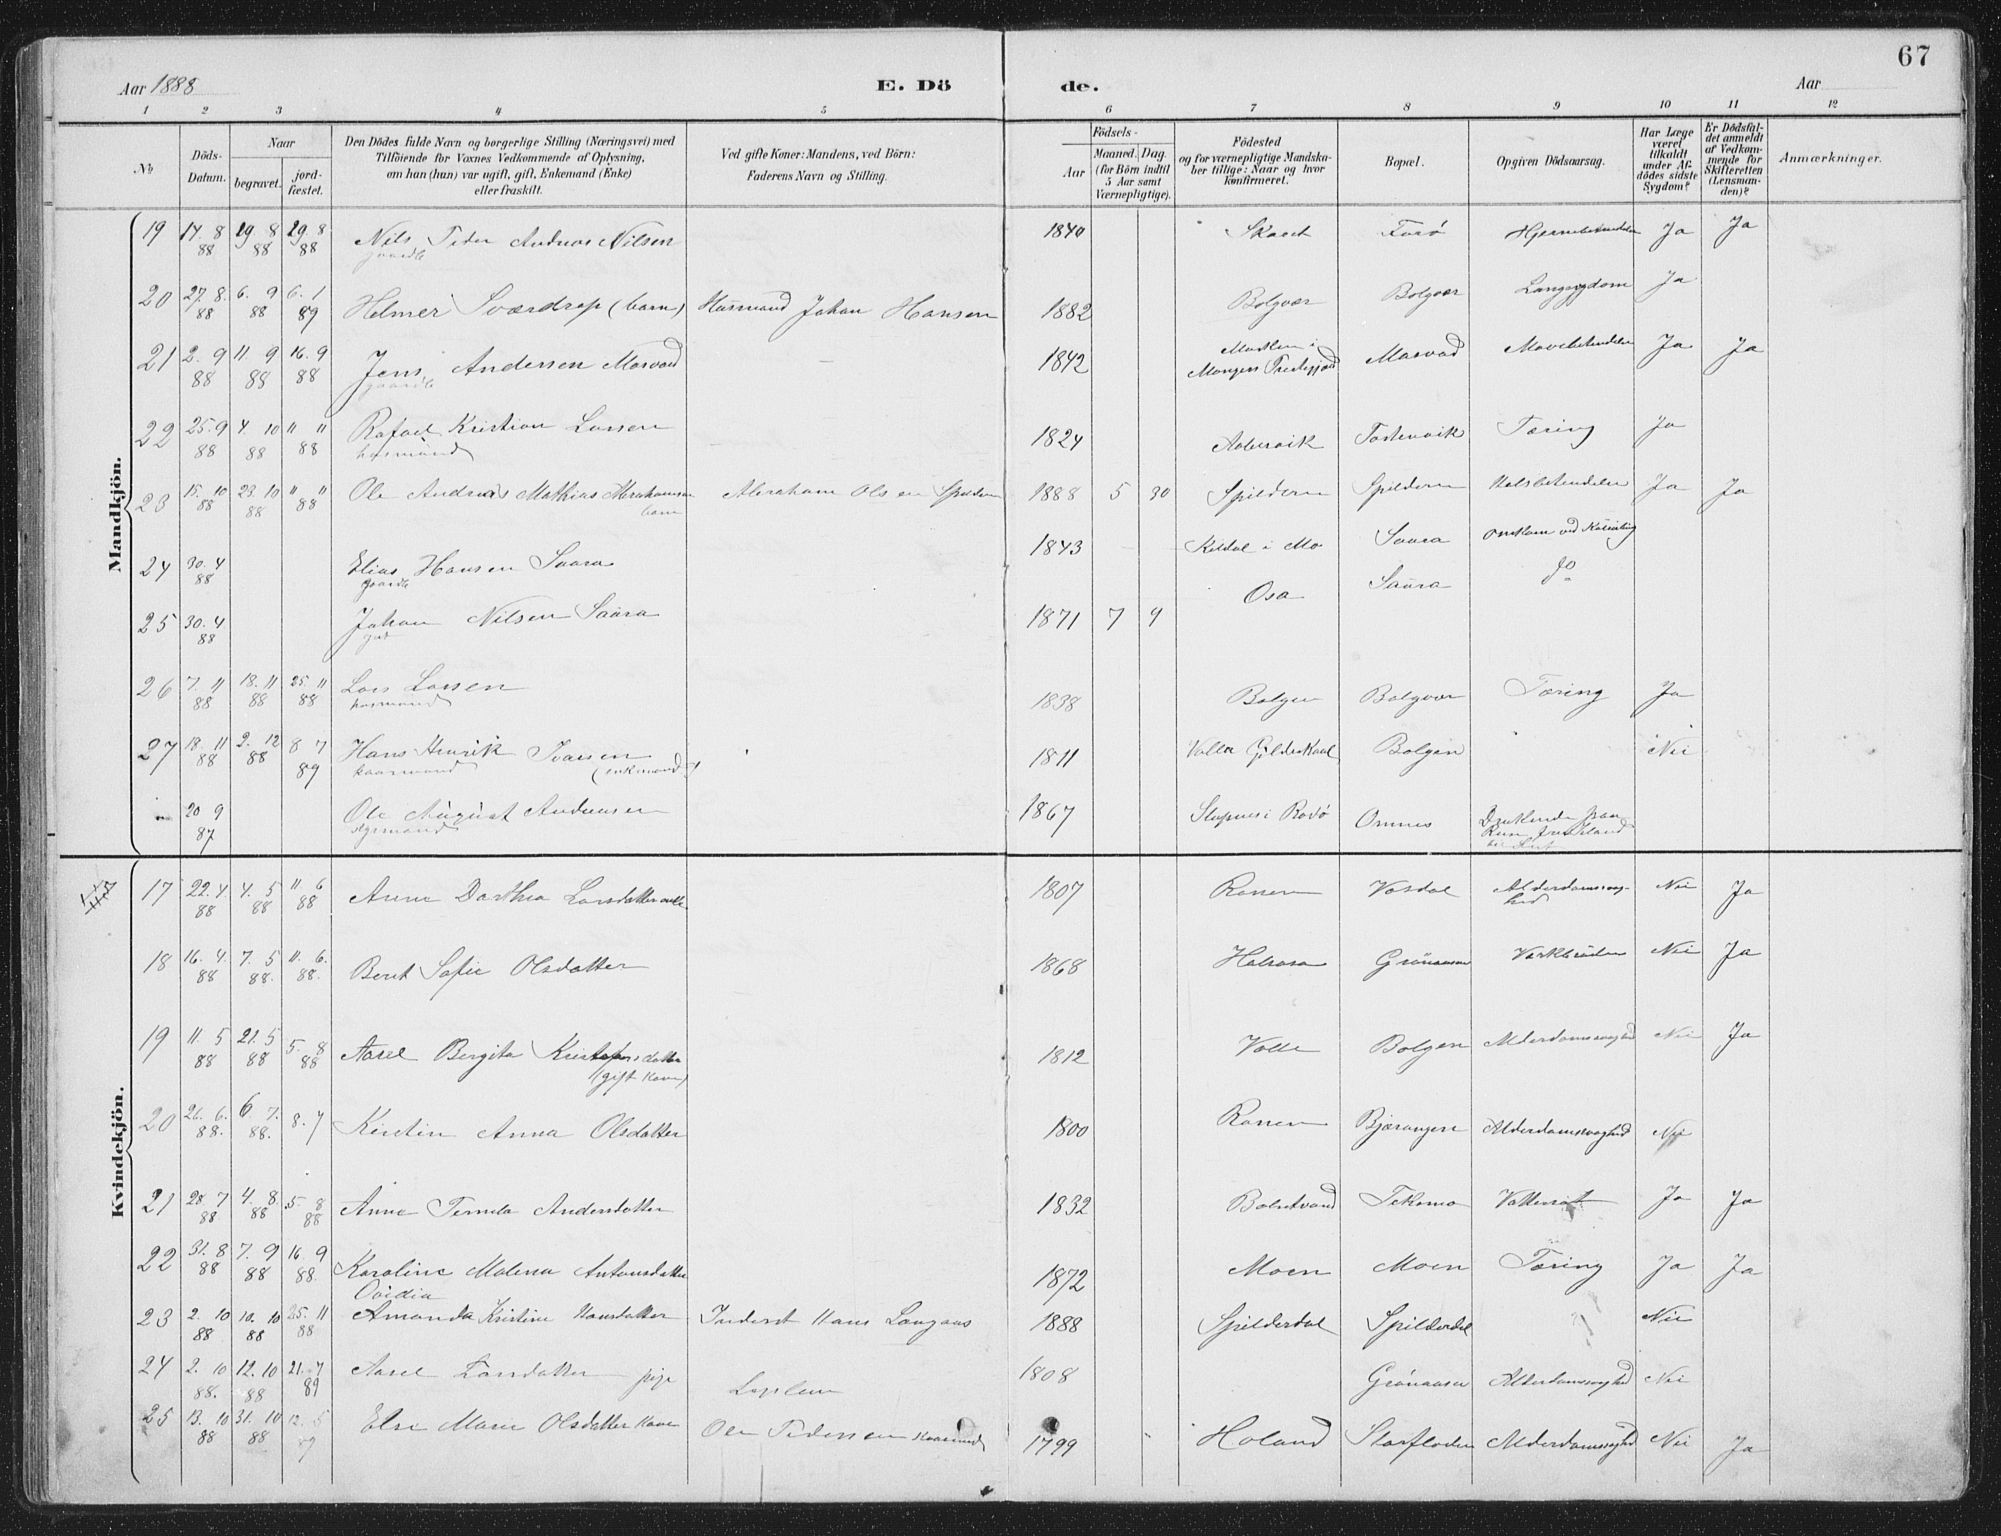 67
Aar 1888
E. Dö
de.
Aar
1 2 3 4 5 6 7 8 9 10 11 12
No
Döds-Datum.
Naar
begravet.
jord-fæstet.
Den Dödes fulde Navn og borgerlige Stilling (Næringsvei) med
Tilföiende for Voxnes Vedkommende af Oplysning,
om han (hun) var ugift, gift, Enkemand (Enke)
eller fraskilt.
Ved gifte Koner: Mandens, ved Börn:
Faderens Navn og Stilling.
Födsels-
Aar
Maaned. Dag.
(for Börn indtil
5 Aar samt
Værnepligtige).
Födested
og for værnepligtige Mandska-
ber tillige: Naar og hvor
konfirmeret.
Bopæl.
Opgiven Dödsaarsag.
Har Læge
været
tilkaldt
under Af-
dödes sidste
Sygdom?
Er Dödsfal-
det anmeldt
af Vedkom-
mende for
Skifteretten
(Lensman-
den)?
Anmærkninger.
Mandkjön.
19 17. 8 88 29. 8 88 29. 8 88 Nils Peder Andreas Nilsen 1840 Forö Ja Ja
gaardb
20 27. 8. 88 6. 9 88 6. 1 89 Helmer Sværdrup (barn) Husmand Johan Hansen 1882 Bolgvær Bolgvær Lungesygdom Ja
21 2. 9 88 11. 9 88 16. 9 88 Jens Andersen Mosvold 1842 Mosvold Mavebetændelse Ja Ja
gaardb
22 25. 9 88 4. 10 88 " " 88 Rafael Kristian Larsen 1824 Tæring Ja
husmand
23 15. 10 88 23. 10 88 " " 88 Ole Andreas Mathias Abrahamsen Abraham Olsen Spildern 1888 5 30 Spildern Spildern Halsbetændelse Ja Ja
barn
24 30. 4 88 Elias Hansen Saura 1843 i Mo Saura Omkom ved Kulseiling
gaardb
25 30. 4 88 Johan Nilsen Saura 1871 7 9 Osa Saura do
26 7. 11 88 18. 11 88 25. 11 88 Lars Larsen 1838 Bolgen Bolgvær Tæring Ja
husmand
27 18. 11 88 2. 12 88 8 7 89 Hans Henrik Ivarsen 1811 Valla Gildeskaal Bolgen Nei
kaarmand (enkemand)
20 9 87 Ole August Andreasen 1867 i Rödö Omnes
Kvindekjön.
17 22. 4. 88 4. 5 88 11 6 88 Anne Dorthea Larsdatter 1807 Ranen Vasdal Alderdomssvag-hed Nei Ja
18 16. 4. 88 7. 5 88. 11. 6. 88. Berit Sofie Olsdatter 1868 Grönaasen Nei Ja
19 11. 5 88 21. 5 88 5. 8 88 Aasel Bergita Kristofersdatter 1812 Valle Bolgen Alderdomssvaghed Nei Ja
(gift Kone)
20 26. 6. 88. 6 7. 88. 8. 7 Kirstin Anna Olsdatter 1800 Ranen Bjærangen Alderdomssvaghed Nei
21 28. 7 88 4. 8. 88 5. 8 88 Anne Andersdatter 1832 Ja Ja
22 31. 8 88 7. 9 88 16. 9 88. Karoline Malena Antonsdatter 1872 Moen Moen Tæring Ja Ja
23 2. 10 88 10. 10 88 25. 11 88 Ovidia
Amanda Kristine Hansdatter Inderst Hans Langaas 1888 Spilderdal Spilderdal Nei
24 2. 10 88. 12. 10 88 21. 7 89 Aasel Larsdatter pige 1808 Grönaasen Alderdomssvaghed Nei
25 13. 10 88 31. 10 88 12. 5 89 Else Marie Olsdatter Kone Ole Pedersen Kaarmand 1799 Holand Storfladen Alderdomssvaghed Nei Ja